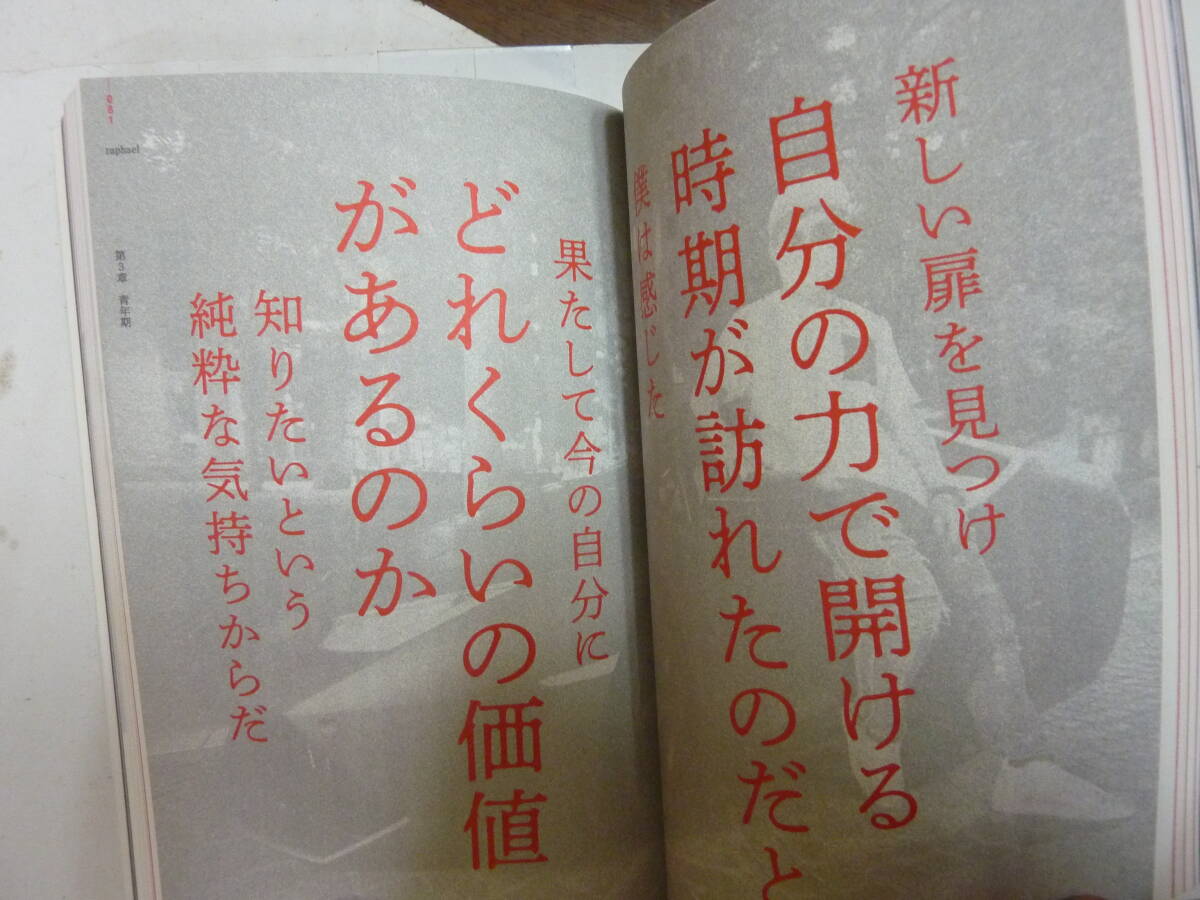 新しい扉を見つけ
自分の力で開ける
時期が訪れたのだと
僕は感じた
果たして今の自分に
どれくらいの価値
があるのか
知りたいという
純粋な気持ちからだ
081
raphael
第3章 青年期